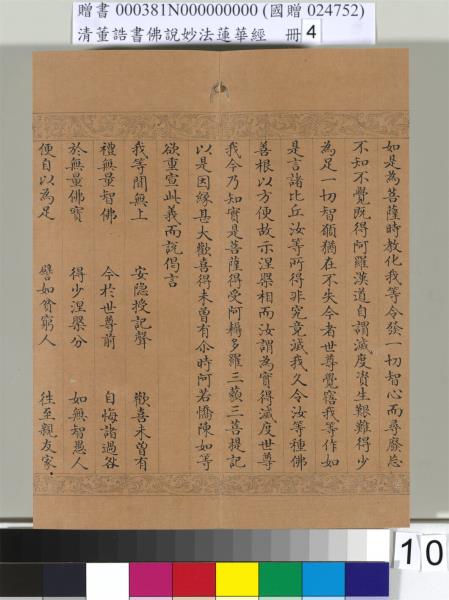 贈書 000381N000000000 (國贈 024752)
清董誥書佛說妙法蓮華經 冊 4
如是為菩薩時教化我等令發一切智心而尋廢忘
不知不覺既得阿羅漢道自謂滅度資生艱難得少
為足一切智願猶在不失今者世尊覺寤我等作如
是言諸比丘汝等所得非究竟滅我久令汝等種佛
善根以方便故示涅槃相而汝謂為實得滅度世尊
我今乃知實是菩薩得受阿耨多羅三藐三菩提記
以是因緣甚大歡喜得未曾有尒時阿若憍陳如等
欲重宣此義而說偈言
我等聞無上 安隱授記聲 歡喜未曾有
禮無量智佛 今於世尊前 自悔諸過咎
於無量佛寶 得少涅槃分 如無智愚人
便自以為足 譬如貧窮人 往至親友家
10